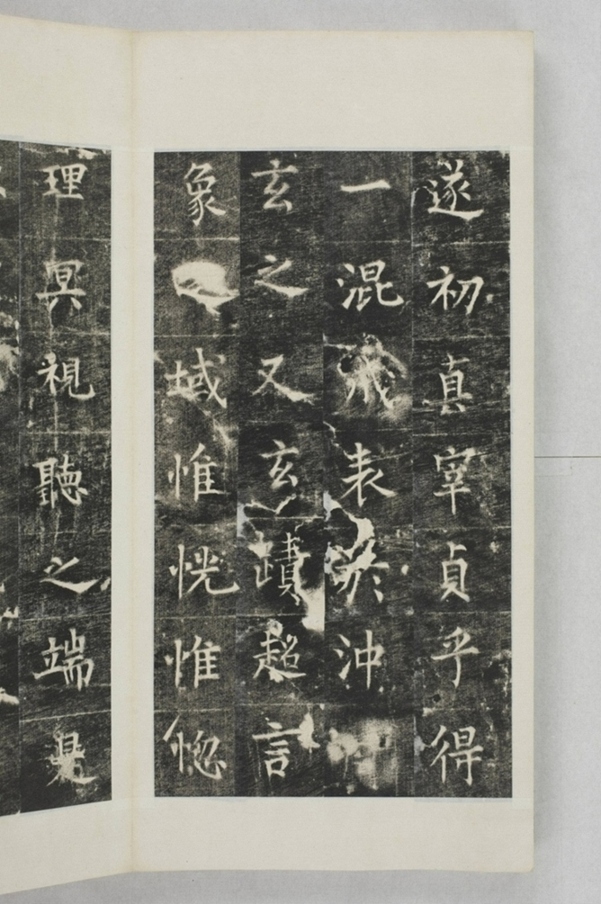 遂初真宰貞乎得
一混成表於沖
玄之又玄蹟超言
象域惟恍惟惚
理冥視聽之端是